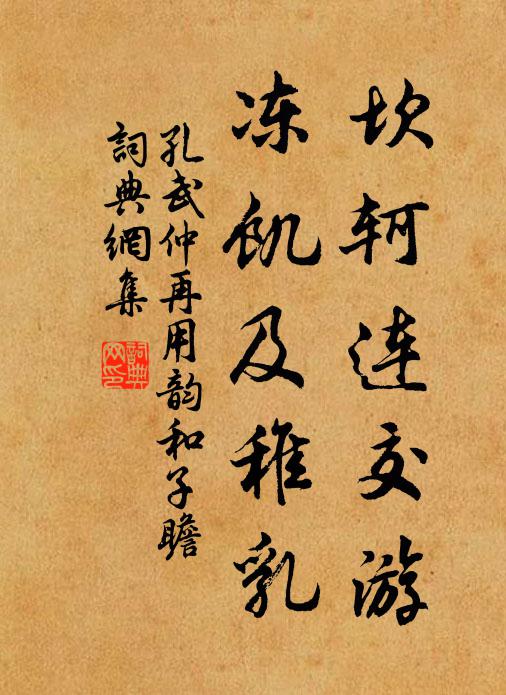 坎轲连交游
冻飢及稚乳
孔武仲再用韵和子瞻
詞典網集
詞典网印